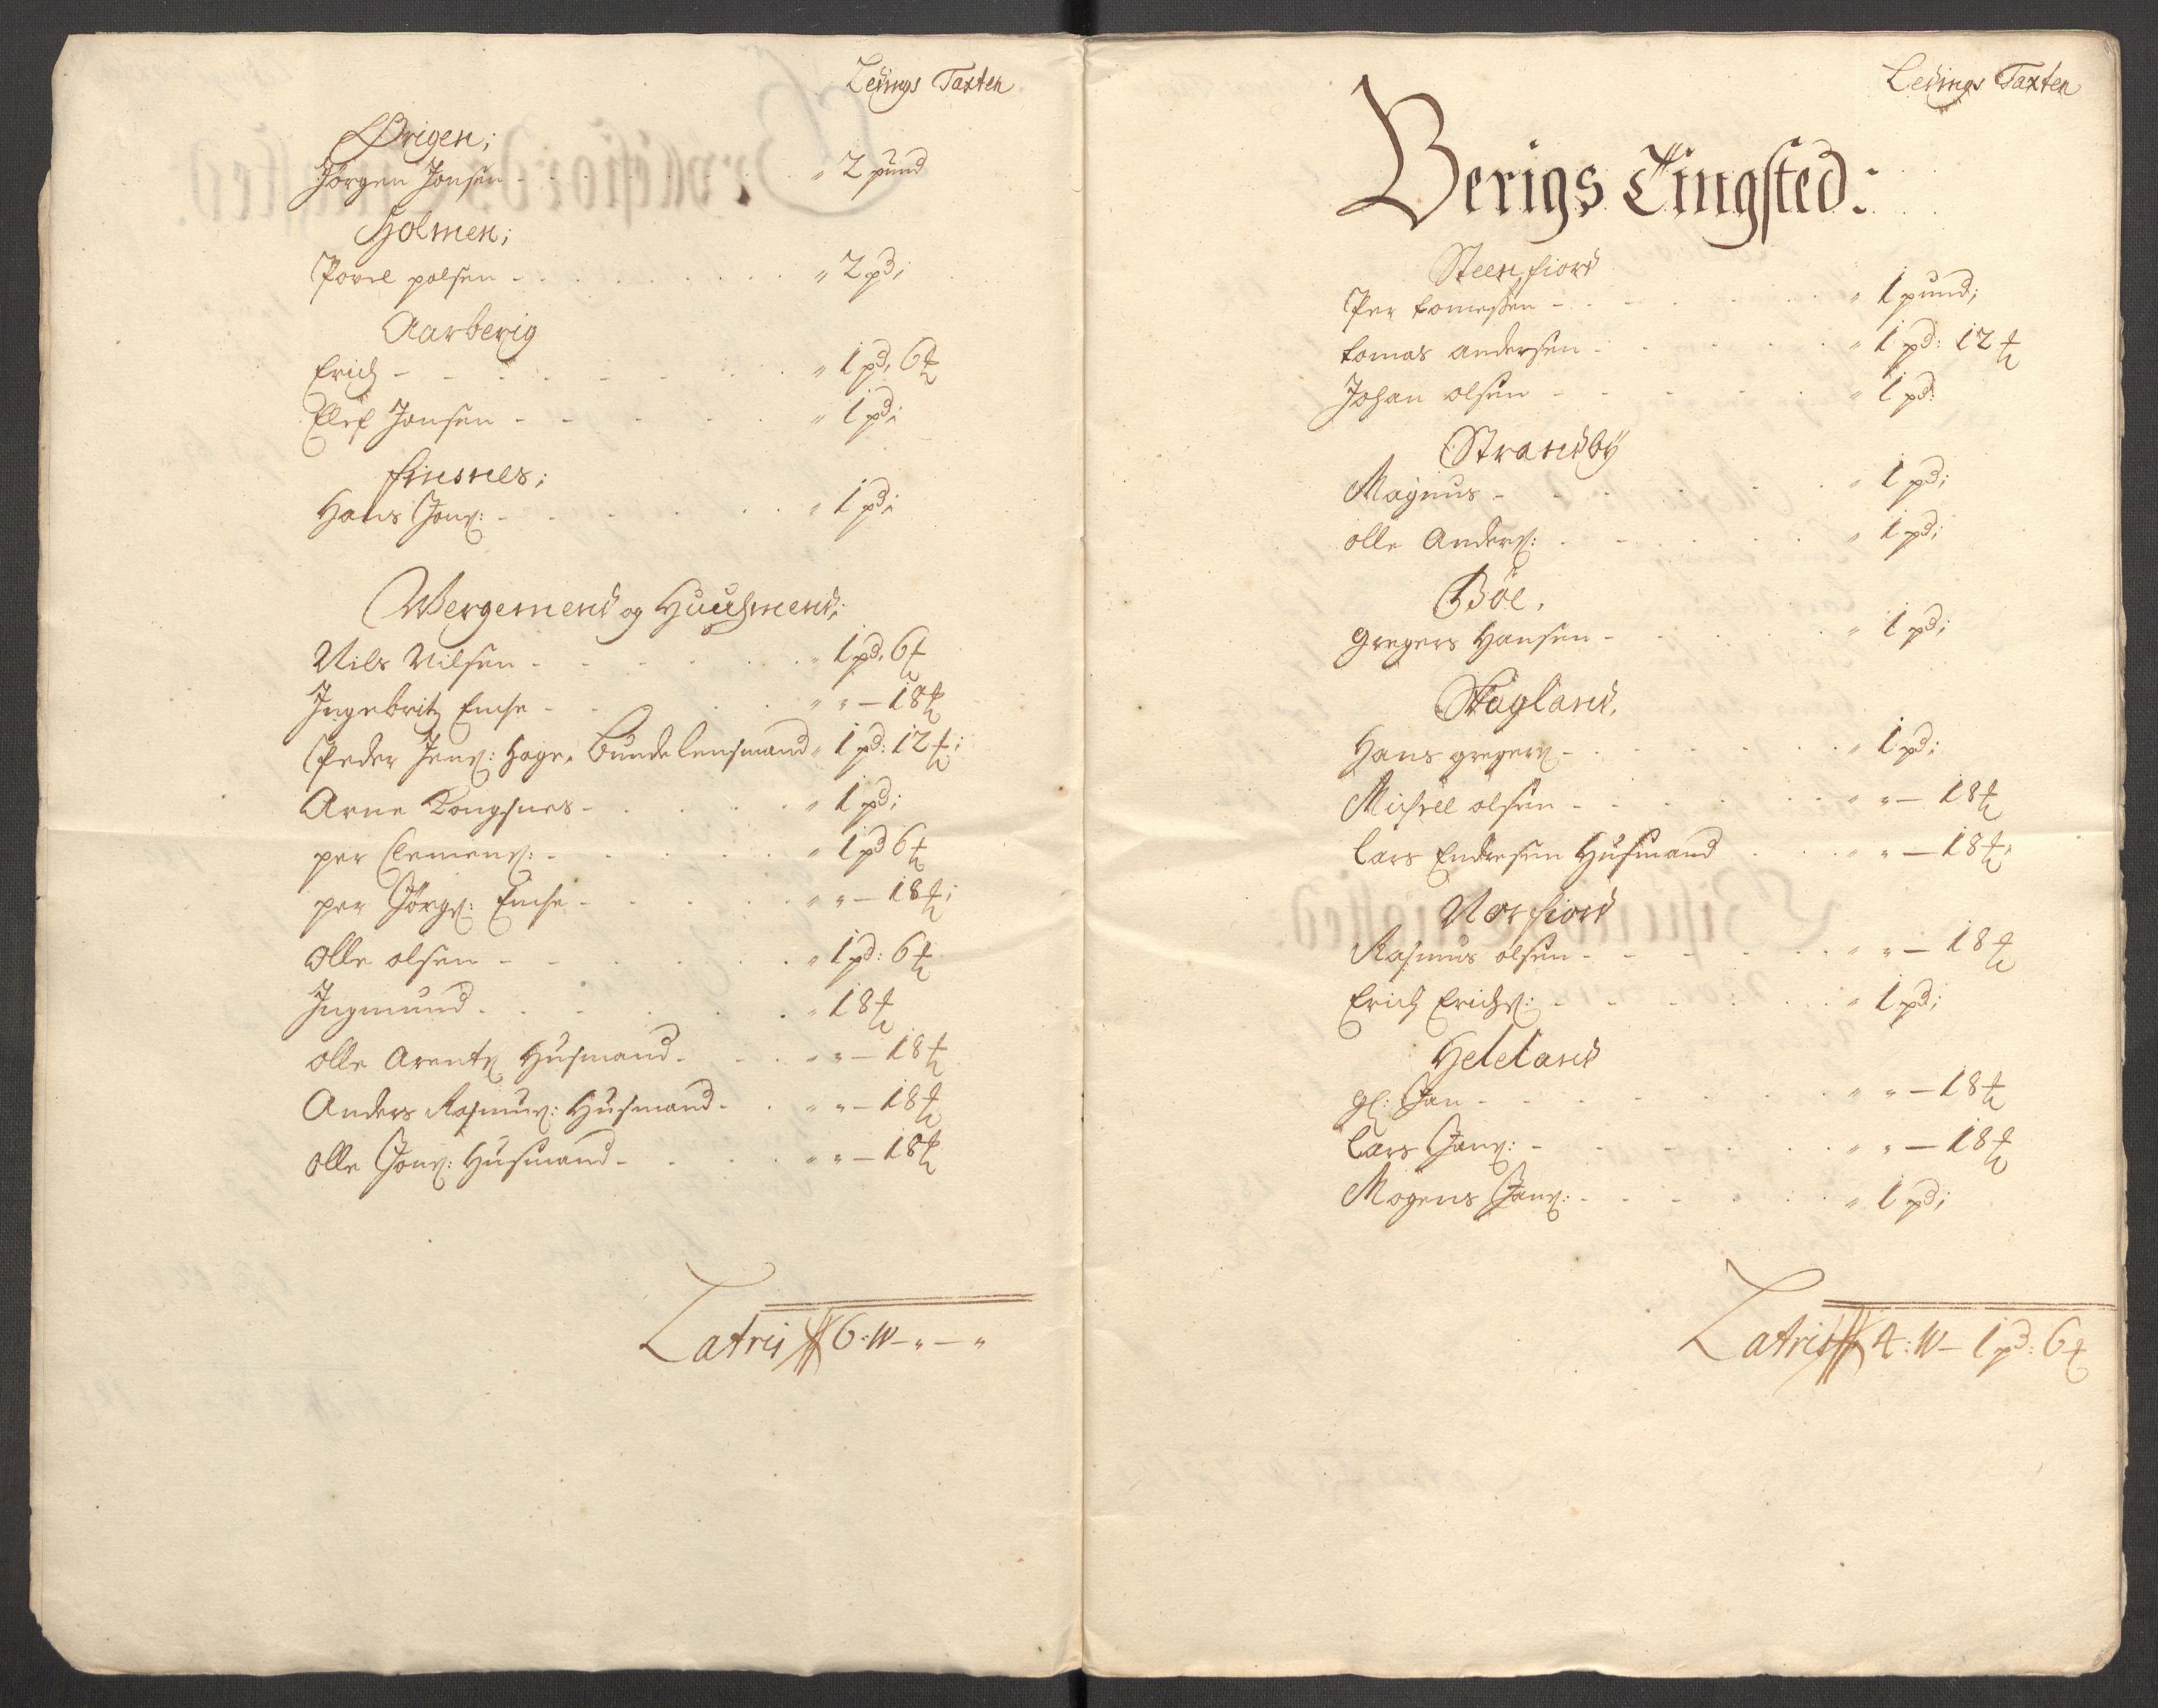 Ledings Taxten
Ørigen;
Jörgen Jonsen - - - - - - „ 2 pund
Holmen;
Povel polsen - - - - - - „ 2 pd;
Aarberig
Erich - - - - - - „ 1 pd. 6 ℔
Elef Jonsen - - - - - - „ 1 pd;
finsnes;
Hans Jons: - - - - - - „ 1 pd;
Wergemend og Huusmend;
Nils Nilsen - - - - - - „ 1 pd. 6 ℔
Ingebrit Encke - - - - „ „ — 18 ℔
Peder Jens: Hage. bundelensmand „ 1 pd: 12 ℔;
Arne Kongsnes - - - - - „ 1 pd;
per Clemens: - - - - - „ 1 pd 6 ℔
per Jörgs: Encke - - - - „ „ — 18 ℔;
Olle olsen - - - - - - „ 1 pd: 6 ℔
Ingmund - - - - - - „ 18 ℔
olle Arents Husmand - - - „ „ — 18 ℔
Anders Rasmus: Husmand - - „ „ — 18 ℔
Olle Jons: Husmand - - - „ „ — 18 ℔
Latris 6: W — „ — „
Ledings Taxten
Berigs Tingsted:
Steenfiord
Per tomeßen - - - - - - „ 1 pund;
tomas andersen - - - - - „ 1 pd: 12 ℔
Johan olsen - - - - - - „ 1 pd:
Strandbÿ
Magnus - - - - - - „ 1 pd;
olle Anders: - - - - - - „ 1 pd;
Böe.
gregers Hansen - - - - - „ 1 pd;
Skagland.
Hans gregers - - - - - - „ 1 pd;
Michel olsen - - - - - „ „ — 18 ℔
Lars Endresen Husmand - - „ „ — 18 ℔;
Norfiord
Rasmus olsen - - - - - „ „ — 18 ℔
Erich Erichs: - - - - - - „ 1 pd;
Heleland
gl: Jan - - - - - - „ „ — 18 ℔
Lars Jans: - - - - - - „ „ — 18 ℔
Mogens Jans: - - - - - - „ 1 pd;
Latris 4: W — 1 pd: 6 ℔